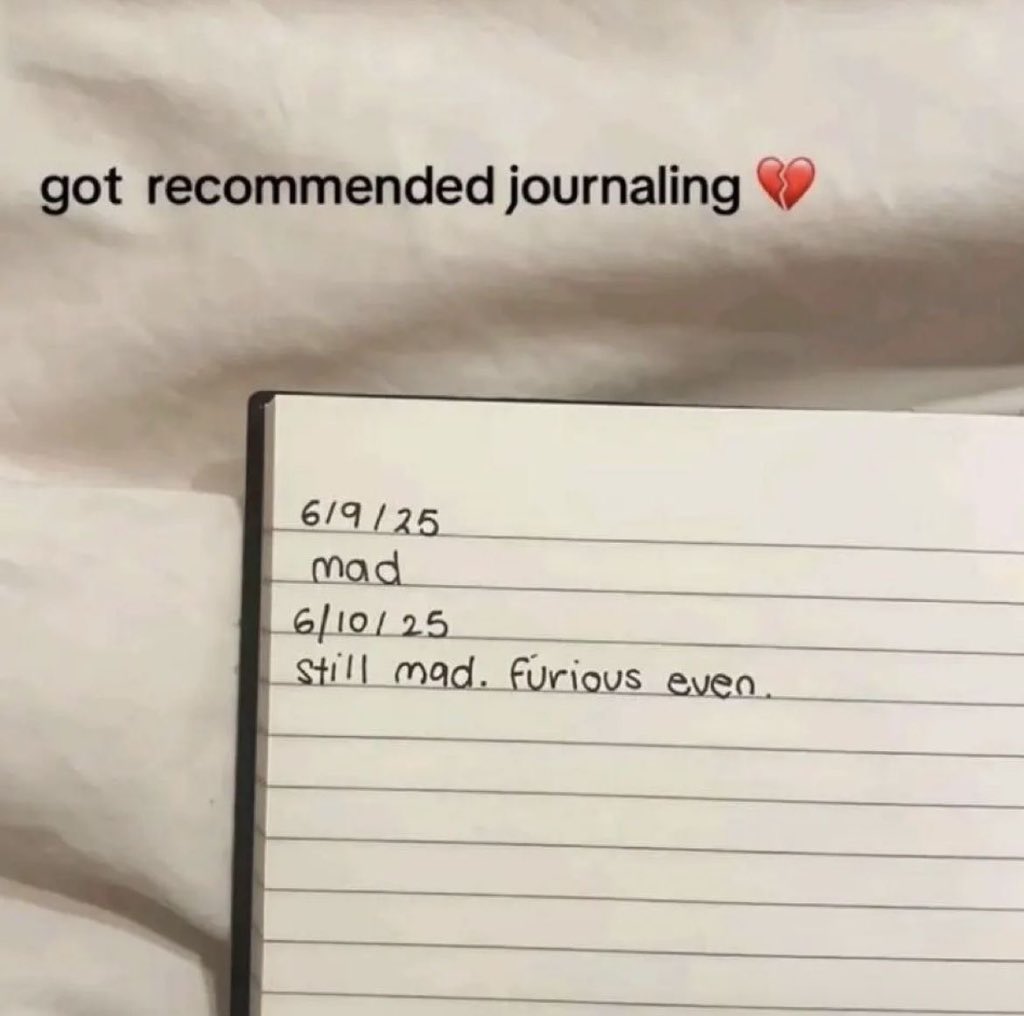 got recommended journaling 💔
6/9/25
mad
6/10/25
still mad. Furious even.